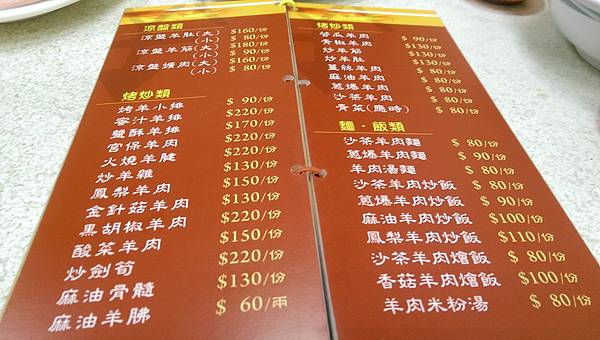 涼盤類
涼盤羊肚(大) $160/份
(小) $ 80/份
涼盤羊筋(大) $180/份
(小) $ 90/份
涼盤爌肉(大) $160/份
(小) $ 80/份
烤炒類
烤羊小排 $ 90/份
蜜汁羊排 $220/份
鹽酥羊排 $170/份
宮保羊肉 $220/份
火燒羊腱 $220/份
炒羊雜 $130/份
鳳梨羊肉 $150/份
金針菇羊肉 $130/份
黑胡椒羊肉 $220/份
酸菜羊肉 $150/份
炒劍筍 $220/份
麻油骨髓 $130/份
麻油羊胇 $ 60/兩
烤炒類
苦瓜羊肉 $ 90/份
青椒羊肉 $130/份
炒羊筋 $130/份
炒羊肚 $130/份
薑絲羊肉 $ 80/份
麻油羊肉 $ 80/份
蔥爆羊肉 $ 80/份
沙茶羊肉 $ 80/份
青菜(應時) $ 80/份
麵‧飯類
沙茶羊肉麵 $ 80/份
蔥爆羊肉麵 $ 90/份
羊肉湯麵 $ 80/份
沙茶羊肉炒飯 $ 80/份
蔥爆羊肉炒飯 $ 90/份
麻油羊肉炒飯 $100/份
鳳梨羊肉炒飯 $110/份
沙茶羊肉燴飯 $ 80/份
香菇羊肉燴飯 $100/份
羊肉米粉湯 $ 80/份